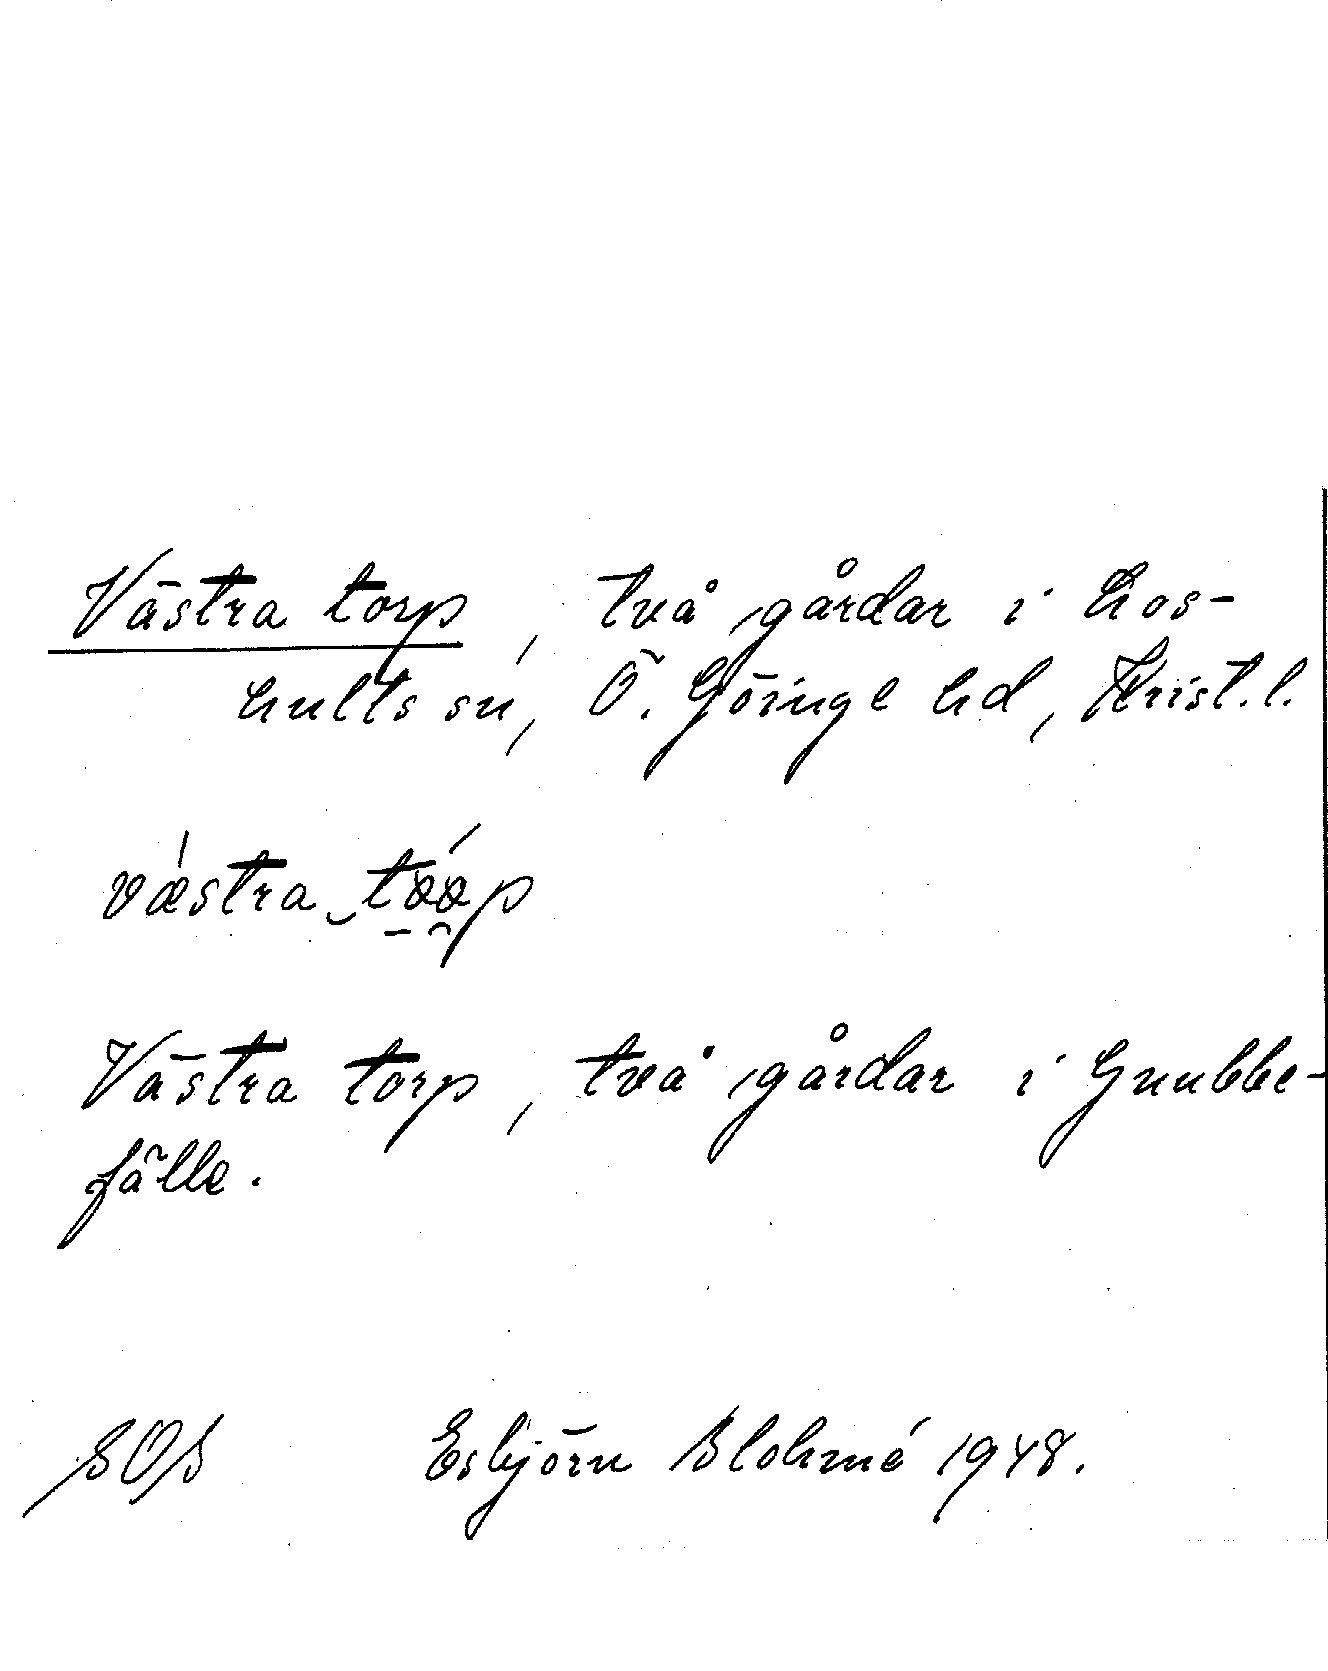 Västra torp, två gårdar i Los-
hults sn, Ö. Göinge hd, Krist. l.
Västra torp, två gårdar i Gnubbe-
fälle.
SOS Esbjörn Blohmé 1948.